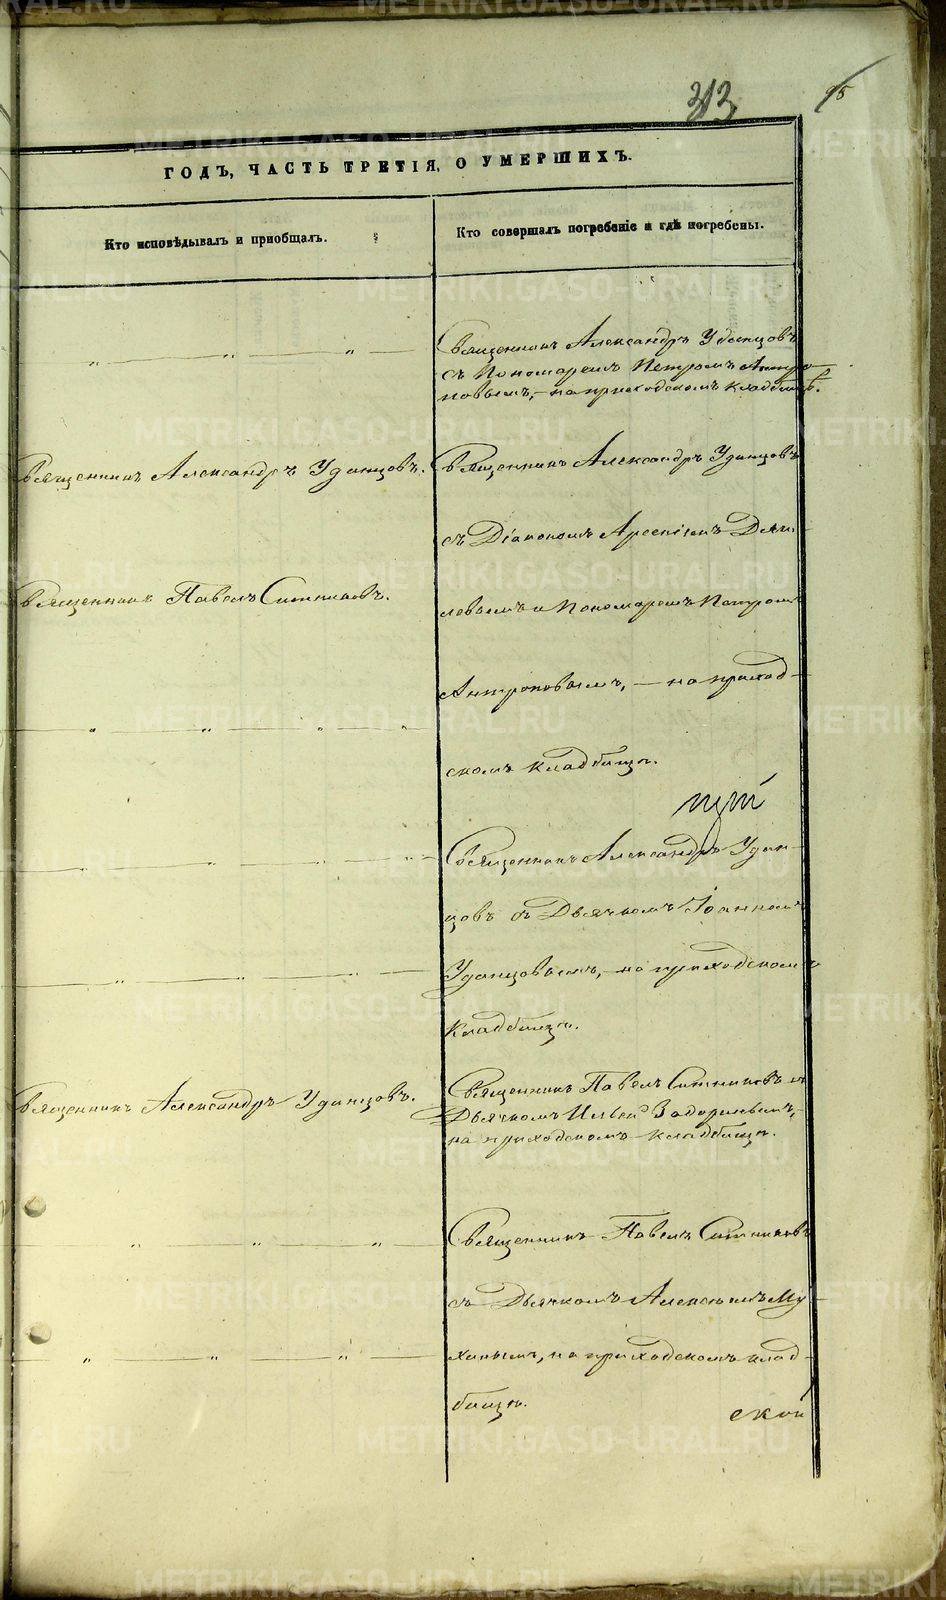 313
95
ГОДЪ, ЧАСТЬ ТРЕТІЯ, О УМЕРШИХЪ.
Кто исповѣдывалъ и пріобщалъ.
Кто совершалъ погребеніе и гдѣ погребены.
Священникъ Александръ Удинцовъ
съ Пономаремъ Петромъ Антро-
повымъ, - на приходскомъ кладбищѣ.
Священникъ Александръ Удинцовъ.
Священникъ Александръ Удинцовъ
съ Діакономъ Арсеніемъ
Священникъ Павелъ Ситниковъ.
левымъ и Пономаремъ Петромъ
Антроповымъ, - на приход-
скомъ кладбищѣ.
Священникъ Александръ Удин-
цовъ съ Дьячкомъ Іоанномъ
Удинцовымъ, - на приходскомъ
кладбищѣ.
Священникъ Александръ Удинцовъ.
Священникъ Павелъ Ситниковъ съ
Дьячкомъ Ильей
на приходскомъ кладбищѣ.
Священникъ Павелъ Ситниковъ
съ Дьячкомъ Алексѣемъ Му-
хинымъ, на приходскомъ клад-
бищѣ.
ской
METRIKI.GASO-URAL.RU